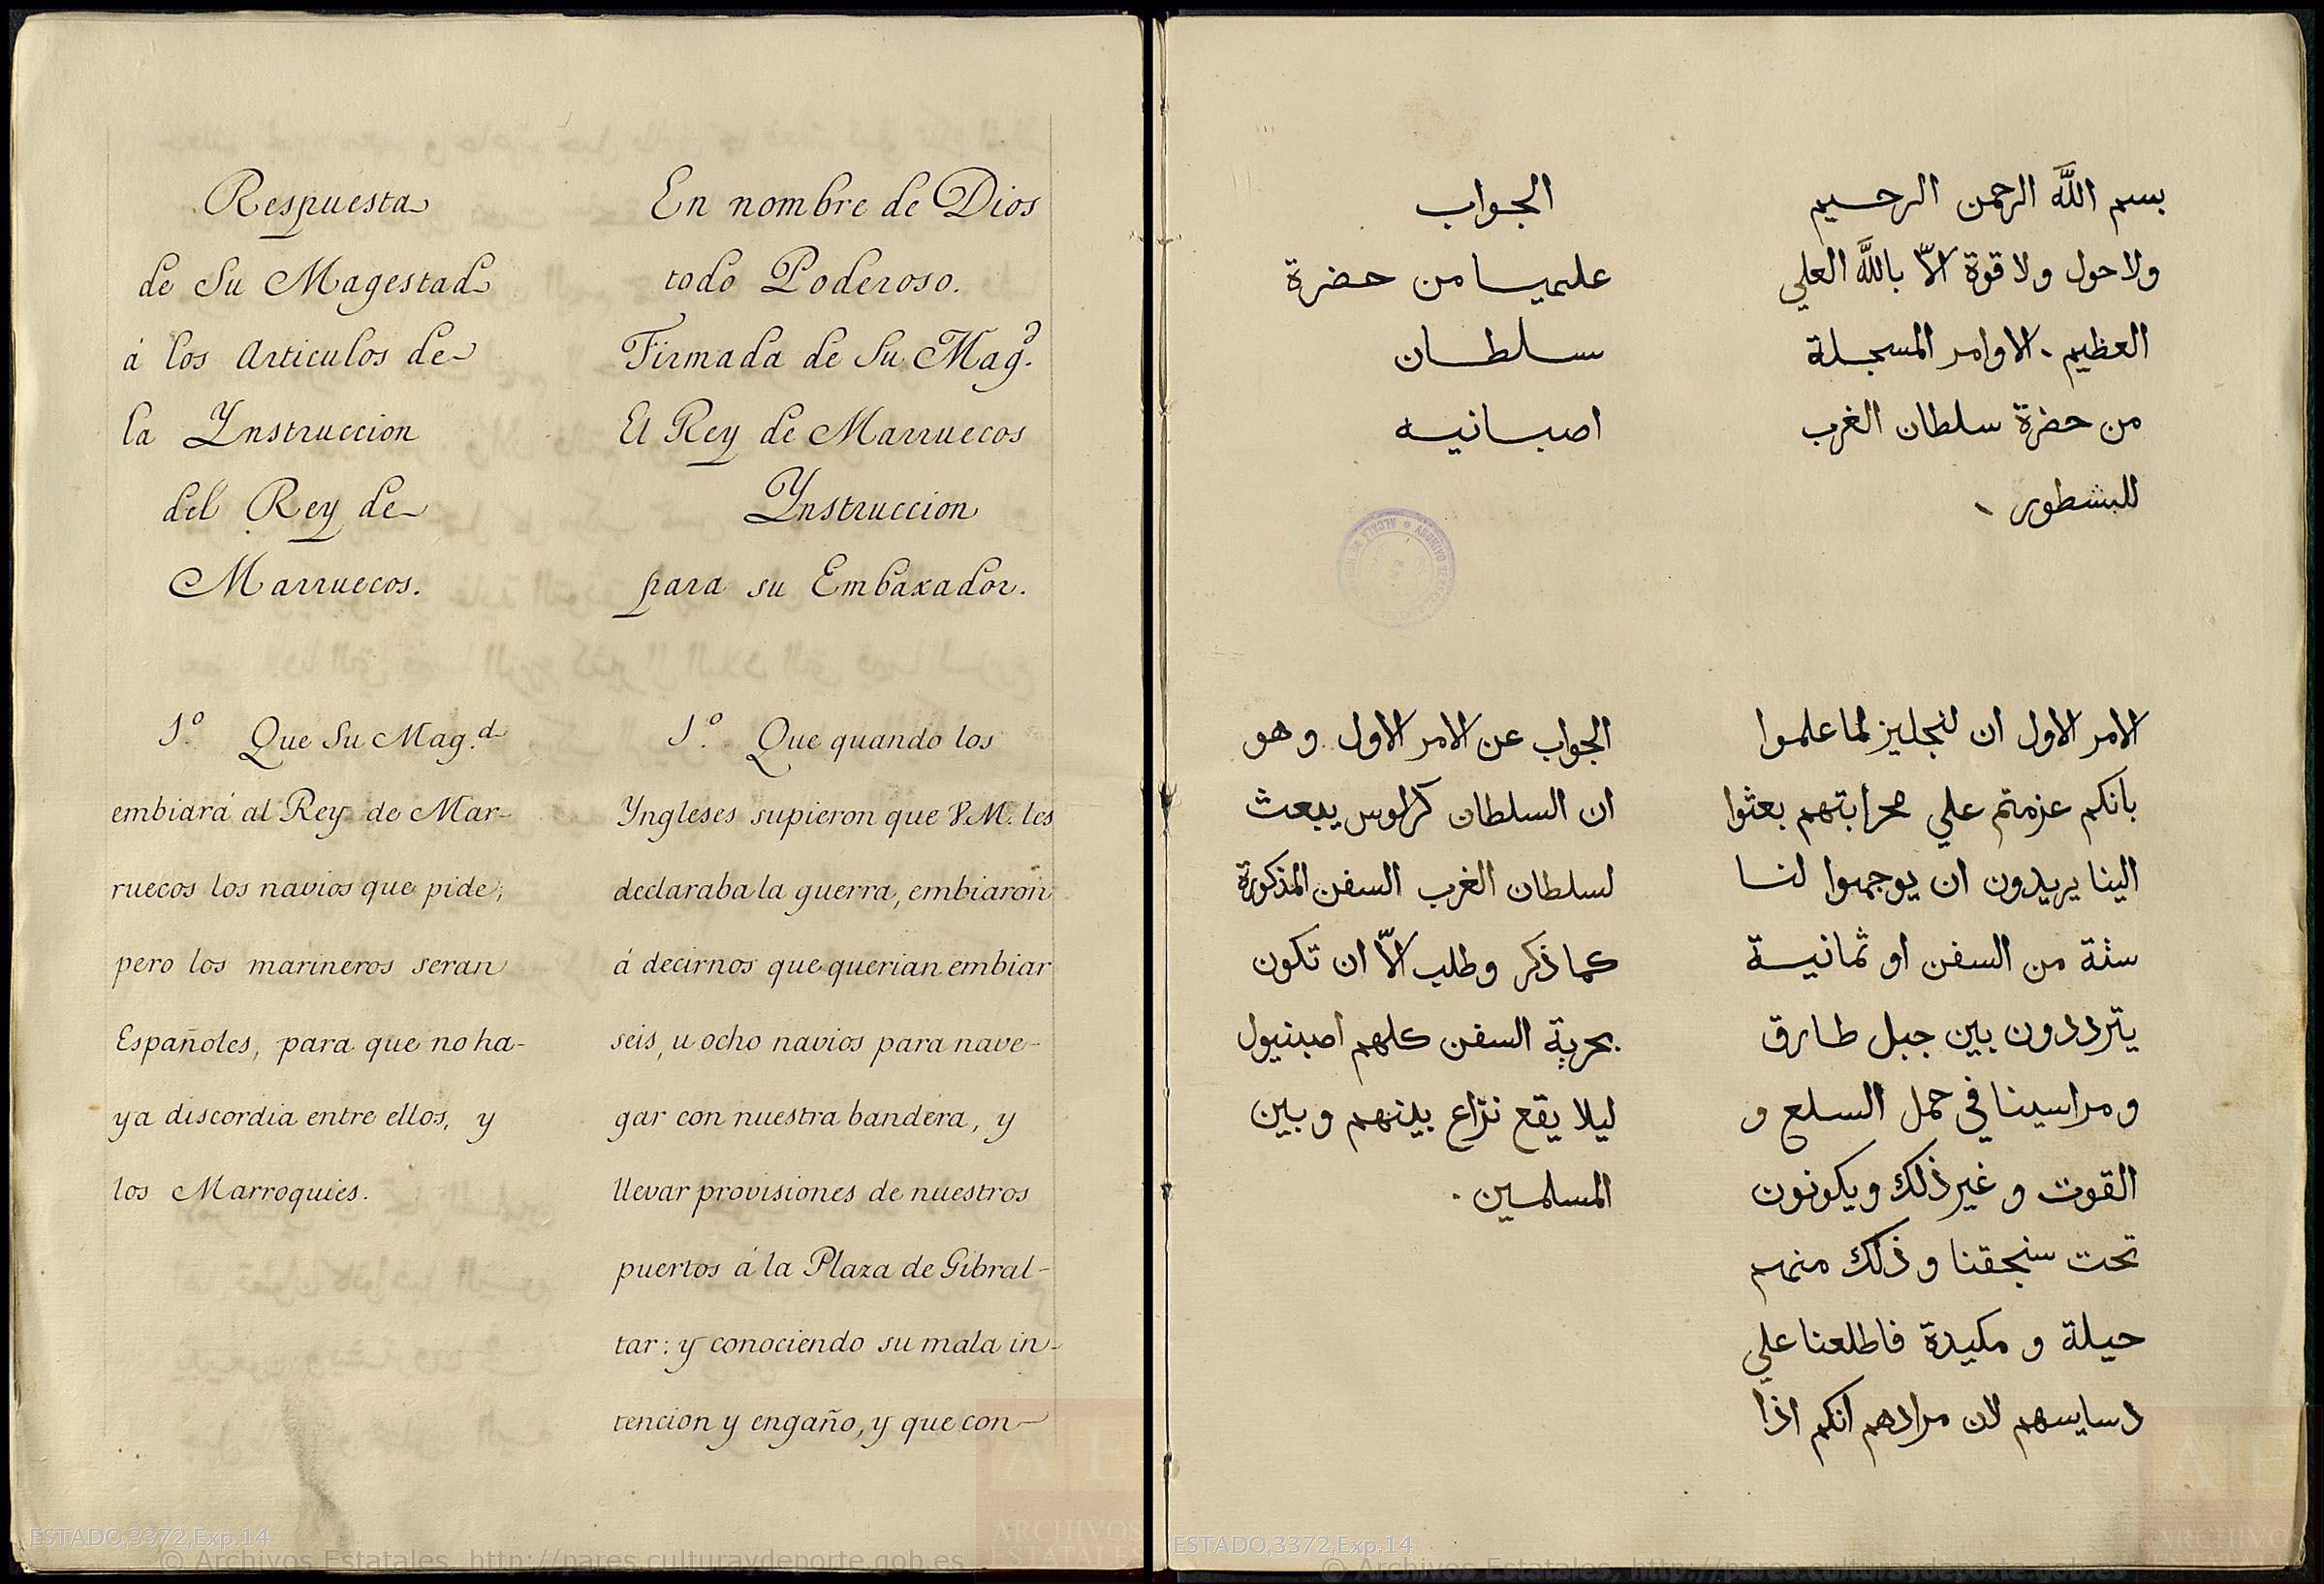 Respuesta
de Su Magestad
á los Articulos de
la Ynstruccion
del Rey de
Marruecos.
1.º Que Su Mag.d
embiará al Rey de Mar-
ruecos los navios que pide;
pero los marineros seran
Españoles, para que no ha-
ya discordia entre ellos, y
los Marroquies.
En nombre de Dios
todo Poderoso.
Firmada de Su Mag.d
El Rey de Marruecos
Ynstruccion
para su Embaxador.
1.º Que quando los
Yngleses supieron que V.M. les
declaraba la guerra, embiaron
á decirnos que querian embiar
seis, u ocho navios para nave-
gar con nuestra bandera, y
llevar provisiones de nuestros
puertos á la Plaza de Gibral-
tar: y conociendo su mala in-
tencion y engaño, y que con-
بسم اللّه الرحمن الرحيم
ولا حول ولا قوة الاّ باللّه العلي
العظيم. الاوامر المسجلة
من حضرة سلطان الغرب
للبشطور
الامر الاول ان لنجليز لما علموا
بانكم عزمتم علي محرابتهم بعثوا
الينا يريدون ان يوجهوا لنا
ستة من السفن او ثمانية
يترددون بين جبل طارق
ومراسينا في حمل السلع و
القوت و غير ذلك ويكونون
تحت سنجقنا و ذلك منهم
حيلة و مكيدة فاطلعنا علي
دسايسهم لان مرادهم انكم اذا
الجواب
عليها من حضرة
سلطان
اصبانيه
الجواب عن الامر الاول وهو
ان السلطان كرلوس يبعث
لسلطان الغرب السفن المذكورة
كما ذكر وطلب الاّ ان تكون
بحرية السفن كلهم اصبنيول
ليلا يقع نزاع بينهم وبين
المسلمين.
ESTADO,3372,Exp.14
© Archivos Estatales, http://pares.culturaydeporte.gob.es
ARCHIVOS
ESTATALES
ESTADO,3372,Exp.14
© Archivos Estatales, http://pares.culturaydeporte.gob.es
ARCHIVOS